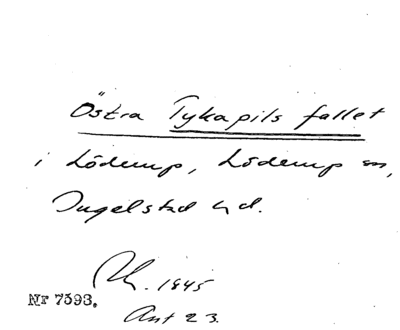 Östra Tykapils fallet
i Löderup, Löderup sn,
Ingelstad hd.
1845
Nr 7593.
Ant 23.